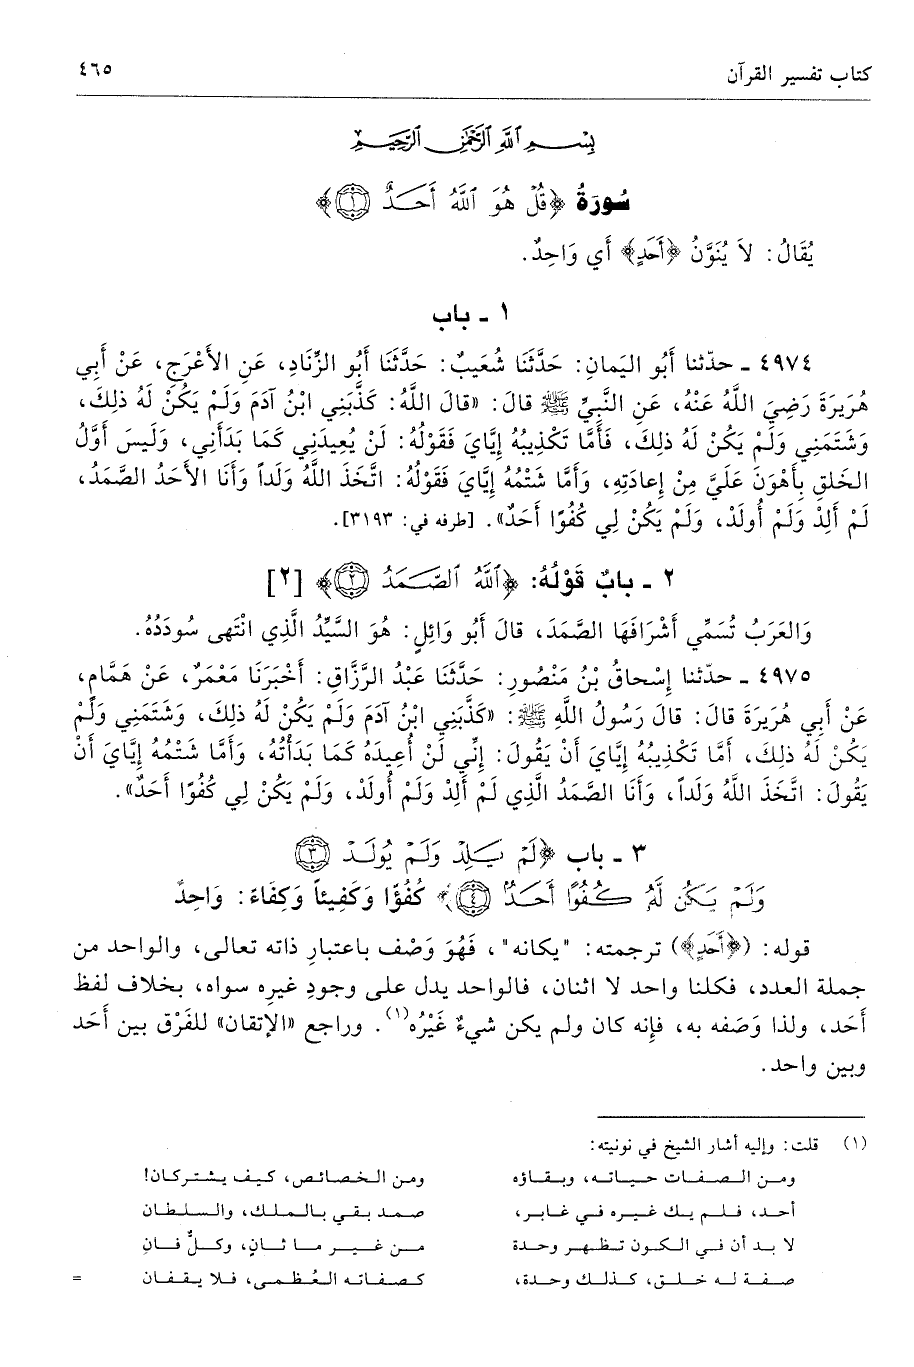 كتاب تفسير القرآن ٤٦٥
بِسْمِ اللَّهِ الرَّحْمَٰنِ الرَّحِيمِ
سُورَةُ ﴿قُلْ هُوَ ٱللَّهُ أَحَدٌ ١﴾
يُقَالُ: لاَ يُنَوَّنُ ﴿أَحَدٍ﴾ أَي وَاحِدٌ.
١ ـ باب
٤٩٧٤ ـ حدّثنا أَبُو اليَمانِ: حَدَّثَنَا شُعَيبٌ: حَدَّثَنَا أَبُو الزِّنَادِ، عَنِ الأَعْرَجِ، عَنْ أَبِي
هُرَيرَةَ رَضِيَ اللَّهُ عَنْهُ، عَنِ النَّبِيِّ ﷺ قالَ: «قالَ اللَّهُ: كَذَّبَنِي ابْنُ آدَمَ وَلَمْ يَكُنْ لَهُ ذلِكَ،
وَشَتَمَنِي وَلَمْ يَكُنْ لَهُ ذلِكَ، فَأَمَّا تَكْذِيبُهُ إِيَّايَ فَقَوْلُهُ: لَنْ يُعِيدَنِي كَمَا بَدَأَنِي، وَلَيسَ أَوَّلُ
الخَلقِ بِأَهْوَنَ عَلَيَّ مِنْ إِعادَتِهِ، وَأَمَّا شَتْمُهُ إِيَّايَ فَقَوْلُهُ: اتَّخَذَ اللَّهُ وَلَداً وَأَنَا الأَحَدُ الصَّمَدُ،
لَمْ أَلِدْ وَلَمْ أُولَدْ، وَلَمْ يَكُنْ لِي كُفُوًا أَحَدٌ». [طرفه في: ٣١٩٣].
٢ ـ بابُ قَوْلُهُ: ﴿ٱللَّهُ ٱلصَّمَدُ ٢﴾ [٢]
وَالعَرَبُ تُسَمِّي أَشْرَافَهَا الصَّمَدَ، قالَ أَبُو وَائِلٍ: هُوَ السَّيِّدُ الَّذِي انْتَهى سُودَدُهُ.
٤٩٧٥ ـ حدّثنا إِسْحاقُ بْنُ مَنْصُورٍ: حَدَّثَنَا عَبْدُ الرَّزَّاقِ: أَخْبَرَنَا مَعْمَرٌ، عَنْ هَمَّامٍ،
عَنْ أَبِي هُرَيرَةَ قالَ: قالَ رَسُولُ اللَّهِ ﷺ: «كَذَّبَنِي ابْنُ آدَمَ وَلَمْ يَكُنْ لَهُ ذلِكَ، وَشَتَمَنِي وَلَمْ
يَكُنْ لَهُ ذلِكَ، أَمَّا تَكْذِيبُهُ إِيَّايَ أَنْ يَقُولَ: إِنِّي لَنْ أُعِيدَهُ كَمَا بَدَأْتُهُ، وَأَمَّا شَتْمُهُ إِيَّايَ أَنْ
يَقُولَ: اتَّخَذَ اللَّهُ وَلَداً، وَأَنَا الصَّمَدُ الَّذِي لَمْ أَلِدْ وَلَمْ أُولَدْ، وَلَمْ يَكُنْ لِي كُفُوًا أَحَدٌ».
٣ ـ باب ﴿لَمْ يَـلِدْ وَلَمْ يُولَدْ ٣
وَلَمْ يَكُن لَّهُ كُفُوًا أَحَدٌ ٤﴾ كُفُؤًا وَكَفِيئاً وَكِفَاءً: وَاحِدٌ
قوله: (﴿أَحَدٍ﴾) ترجمته: "يكانه"، فَهُوَ وَصْف باعتبارِ ذاته تعالى، والواحد من
جملة العدد، فكلنا واحد لا اثنان، فالواحد يدل على وجودِ غيرِه سواه، بخلاف لفظ
أَحَد، ولذا وَصَفه به، فإِنه كان ولم يكن شيءٌ غَيْرُه(١). وراجع «الإِتقان» للفَرْق بين أَحَد
وبين واحد.
(١) قلت: وإليه أشار الشيخ في نونيته:
ومن الصفات حياته، وبقاؤه ومن الخصائص، كيف يشتركان!
أحد، فلم يك غيره في غابر، صمد بقي بالملك، والسلطان
لا بد أن في الكون تظهر وحدة من غير ما ثان، وكلٌّ فانِ
صفة له خلق، كذلك وحدة، كصفاته العُظمى، فلا يقفان =